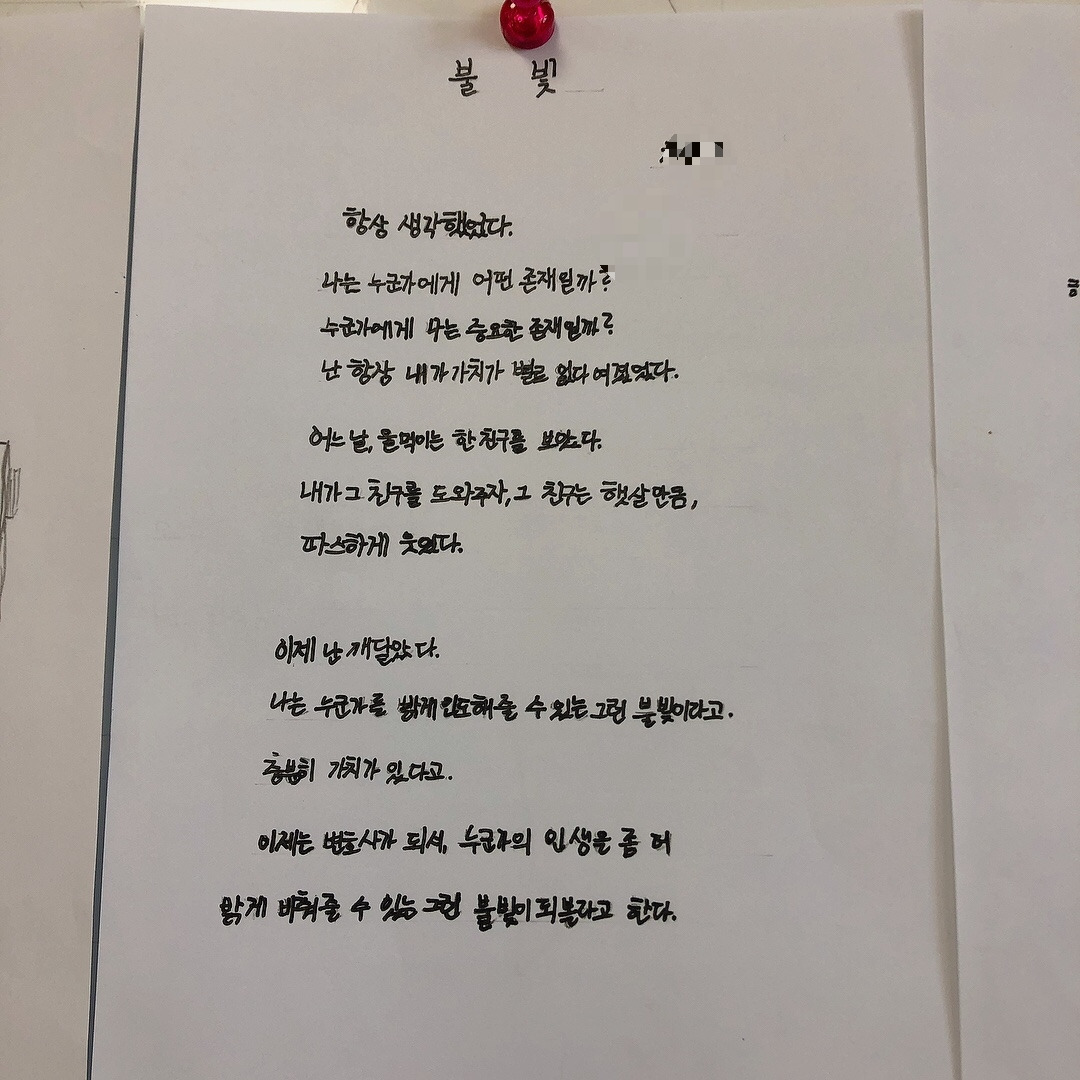 불 빛
항상 생각했었다.
나는 누군가에게 어떤 존재일까?
누군가에게 나는 중요한 존재일까?
난 항상 내가 가치가 별로 없다 여겼었다.
어느날, 울먹이는 한 친구를 보았다.
내가 그 친구를 도와주자, 그 친구는 햇살만큼,
따스하게 웃었다.
이제 난 깨달았다.
나는 누군가를 밝게 인도해줄 수 있는 그런 불빛이라고.
충분히 가치가 있다고.
이제는 변호사가 되서, 누군가의 인생을 좀 더
밝게 비춰줄 수 있는 그런 불빛이 되볼라고 한다.